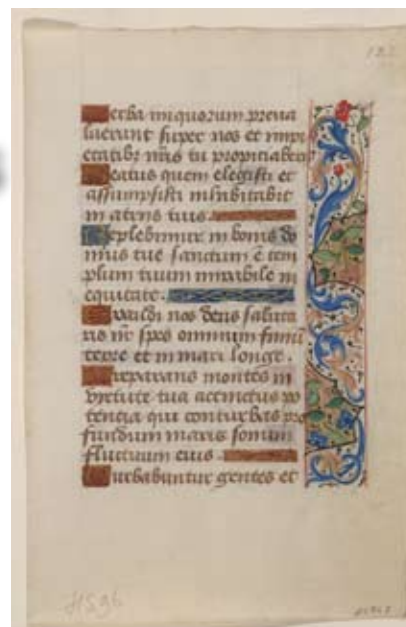 Verba iniquorum preva
luerunt super nos et impi
etatibꝫ nr̃is tu propitiaberis
Beatus quem elegisti et
assumpsisti inhabitabit
in atriis tuis.
Replebimur in bonis do
mus tue sanctum ē tem
plum tuum mirabile in
equitate.
Exaudi nos deus saluta
ris nr̃ spes omnium finiū
terre et in mari longe.
Preparans montes in
virtute tua accinctus po
tencia qui conturbas pro
fundum maris sonum
fluctuum eius.
Turbabuntur gentes et